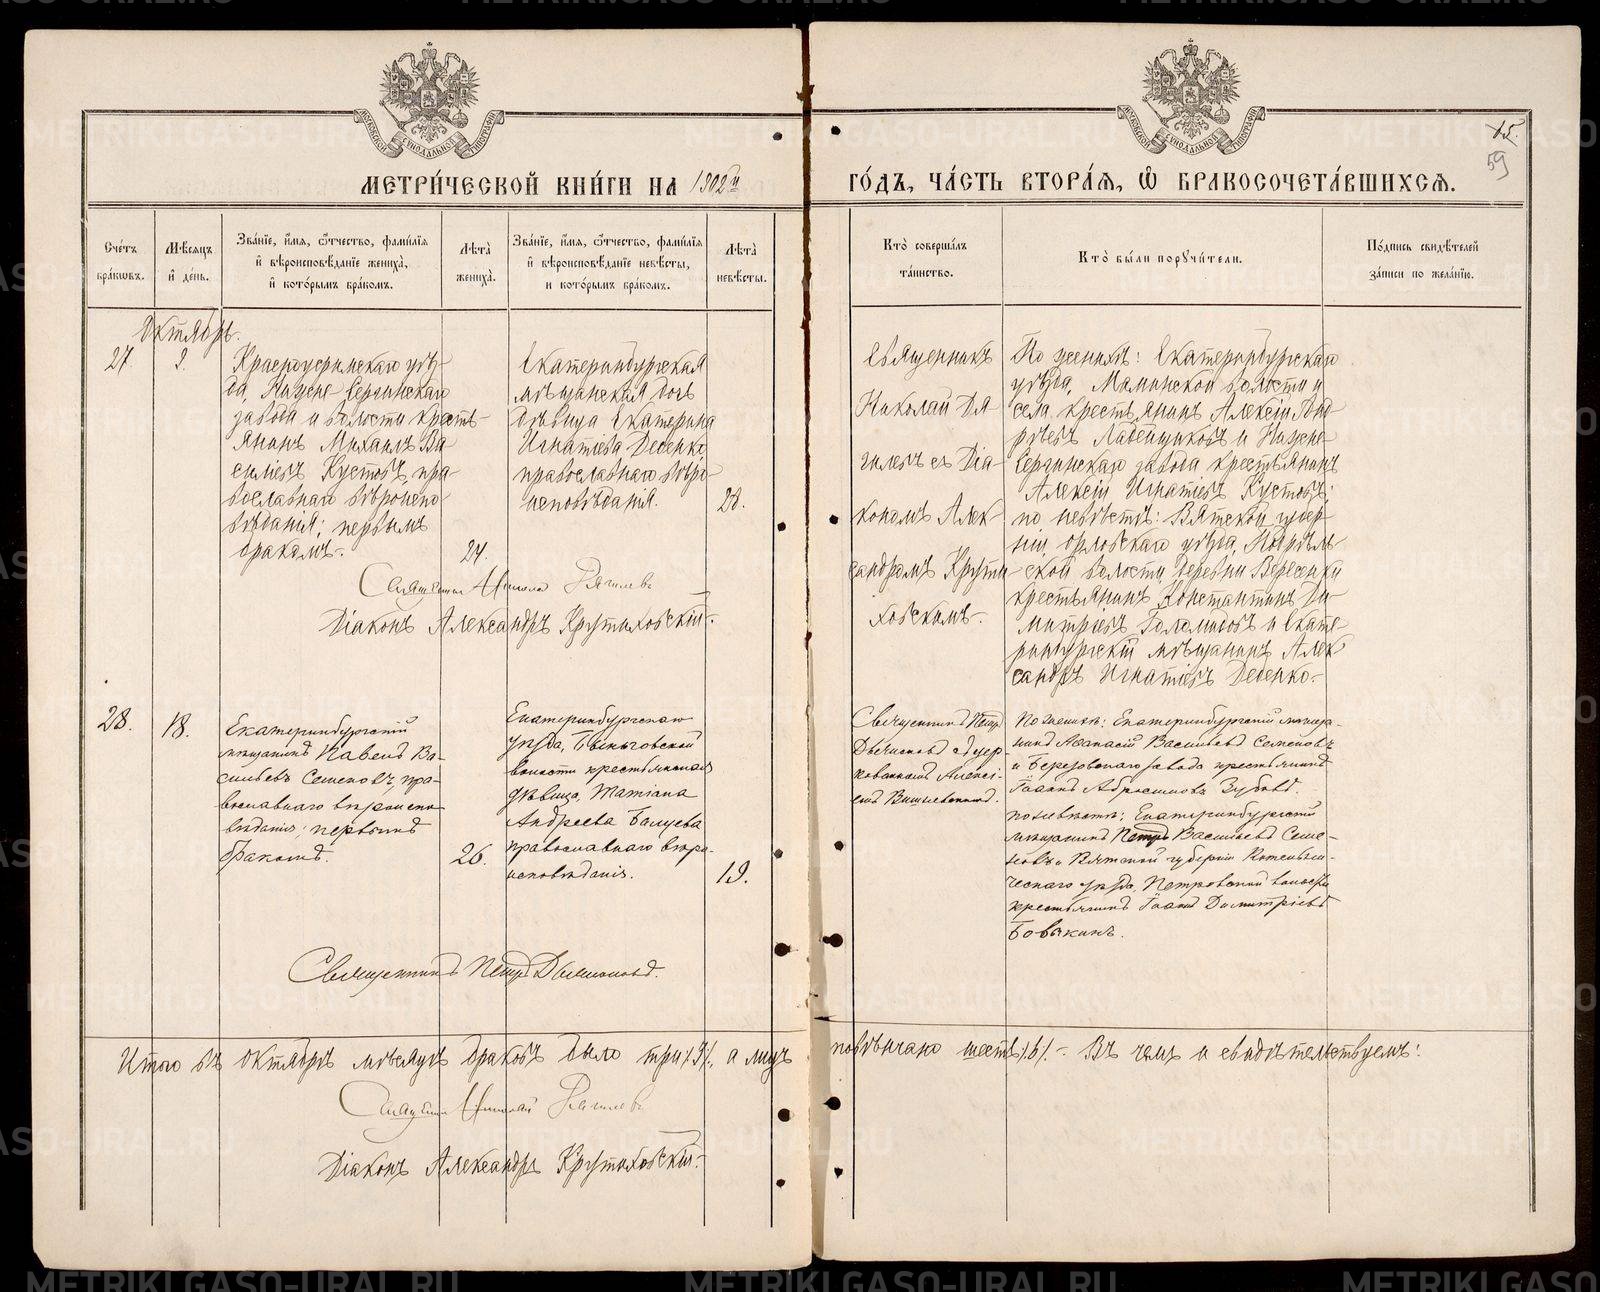 МЕТРИ́ЧЕСКОЙ КНИ́ГИ НА 1902й
ГО́ДЪ, ЧА́СТЬ ВТОРА́Я, Ѡ҆ БРАКОСОЧЕТА́ВШИХСЯ.
15.
59
Сче́тъ бра́ковъ.
Мѣ́сяцъ и҆ де́нь.
Зва́нїе, и҆́мя, ѻ҆́тчество, фами́лїя и҆ вѣроисповѣ́данїе жениха̀, и҆ кото́рымъ бра́комъ.
Лѣ́та жениха̀.
Зва́нїе, и҆́мя, ѻ҆́тчество, фами́лїя и҆ вѣроисповѣ́данїе невѣ́сты, и кото́рымъ бра́комъ.
Лѣ́та невѣ́сты.
Кто̀ соверша́лъ та́инство.
Кто̀ бы́ли порꙋчи́тели.
По́дпись свидѣ́телей за́писи по жела́нїю.
Октябрь.
27.
2.
Красноуфимскаго уѣз-
да, Нязе-Сергинскаго
завода и волости кресть-
янинъ Михаилъ Ва-
сильевъ Кустовъ, пра-
вославнаго вѣроиспо-
вѣданія; первымъ
бракомъ.
24.
Екатеринбургская
мѣщанская дочь
дѣвица Екатерина
Игнатіева Деденко,
православнаго вѣро-
исповѣданія.
28.
Священникъ
Николай Дя-
гилевъ съ Діа-
кономъ Алек-
сандромъ Крути-
ховскимъ.
По женихѣ: Екатеринбургскаго
уѣзда, Маминской волости и
села, крестьянинъ Алексій Анд-
реевъ Лабенщиковъ и Нязе-
Сергинскаго завода крестьянинъ
Алексій Игнатіевъ Кустовъ;
по невѣстѣ: Вятской губер-
ніи, Орловскаго уѣзда,
ской волости деревни
крестьянинъ Константинъ Ди-
митріевъ и Екате-
ринбургскій мѣщанинъ Алек-
сандръ Игнатіевъ Деденко.
Священникъ Николай Дягилевъ
Діаконъ Александръ Крутиховскій.
28.
18.
Екатеринбургскій
мѣщанинъ Павелъ Ва-
сильевъ Семеновъ, пра-
вославнаго вѣроиспо-
вѣданія; первымъ
бракомъ.
26.
Екатеринбургскаго
уѣзда, Быньговской
волости крестьянская
дѣвица, Татіана
Андреева Балуева
православнаго вѣро-
исповѣданія.
19.
Священникъ Петръ
Дьячковъ
Алексі-
емъ
По женихѣ: Екатеринбургскій мѣща-
нинъ Аѳанасій Васильевъ Семеновъ
и Березовскаго завода крестьянинъ
Іоаннъ Абросимовъ Зубовъ.
по невѣстѣ: Екатеринбургскій
мѣщанинъ Петръ Васильевъ Семе-
новъ и Вятской губерніи Котельни-
ческаго уѣзда, Петровской волости
крестьянинъ Іоаннъ Димитріевъ
Бовыкинъ.
Священникъ Петръ Дьячковъ.
Итого въ октябрѣ мѣсяцѣ браковъ было три /3/. а лицъ повѣнчано шесть /6/. Въ чемъ и свидѣтельствуемъ:
Священникъ Николай Дягилевъ
Діаконъ Александръ Крутиховскій.
METRIKI.GASO-URAL.RU